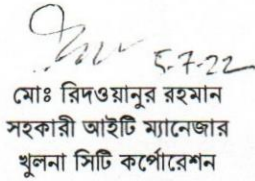 ৫-7-22
মোঃ রিদওয়ানুর রহমান
সহকারী আইটি ম্যানেজার
খুলনা সিটি কর্পোরেশন